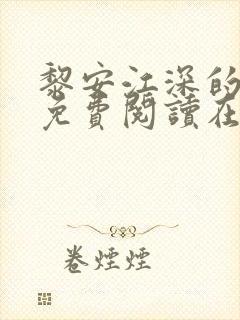 黎安江深的
免費閱讀在
卷煙煙